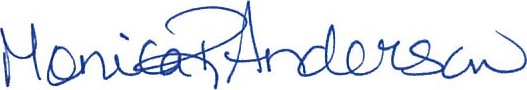 Monica P Anderson